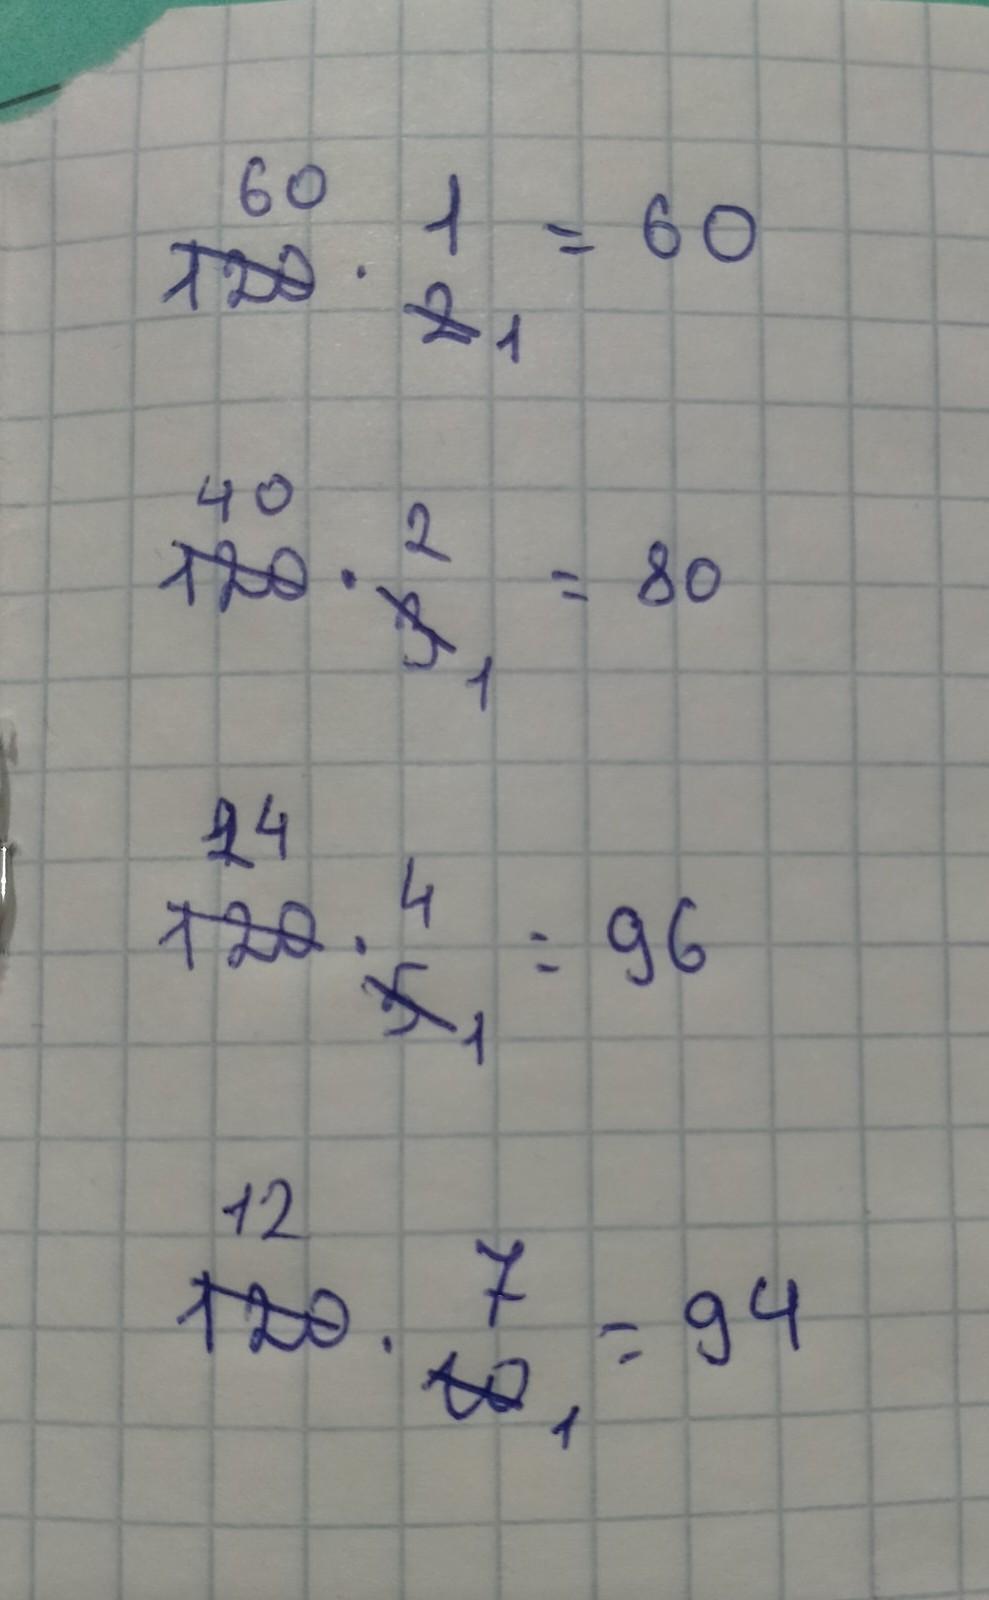 60
120 · 1/2 1 = 60
40
120 · 2/3 1 = 80
24
120 · 4/5 1 = 96
12
120 · 7/10 1 = 94